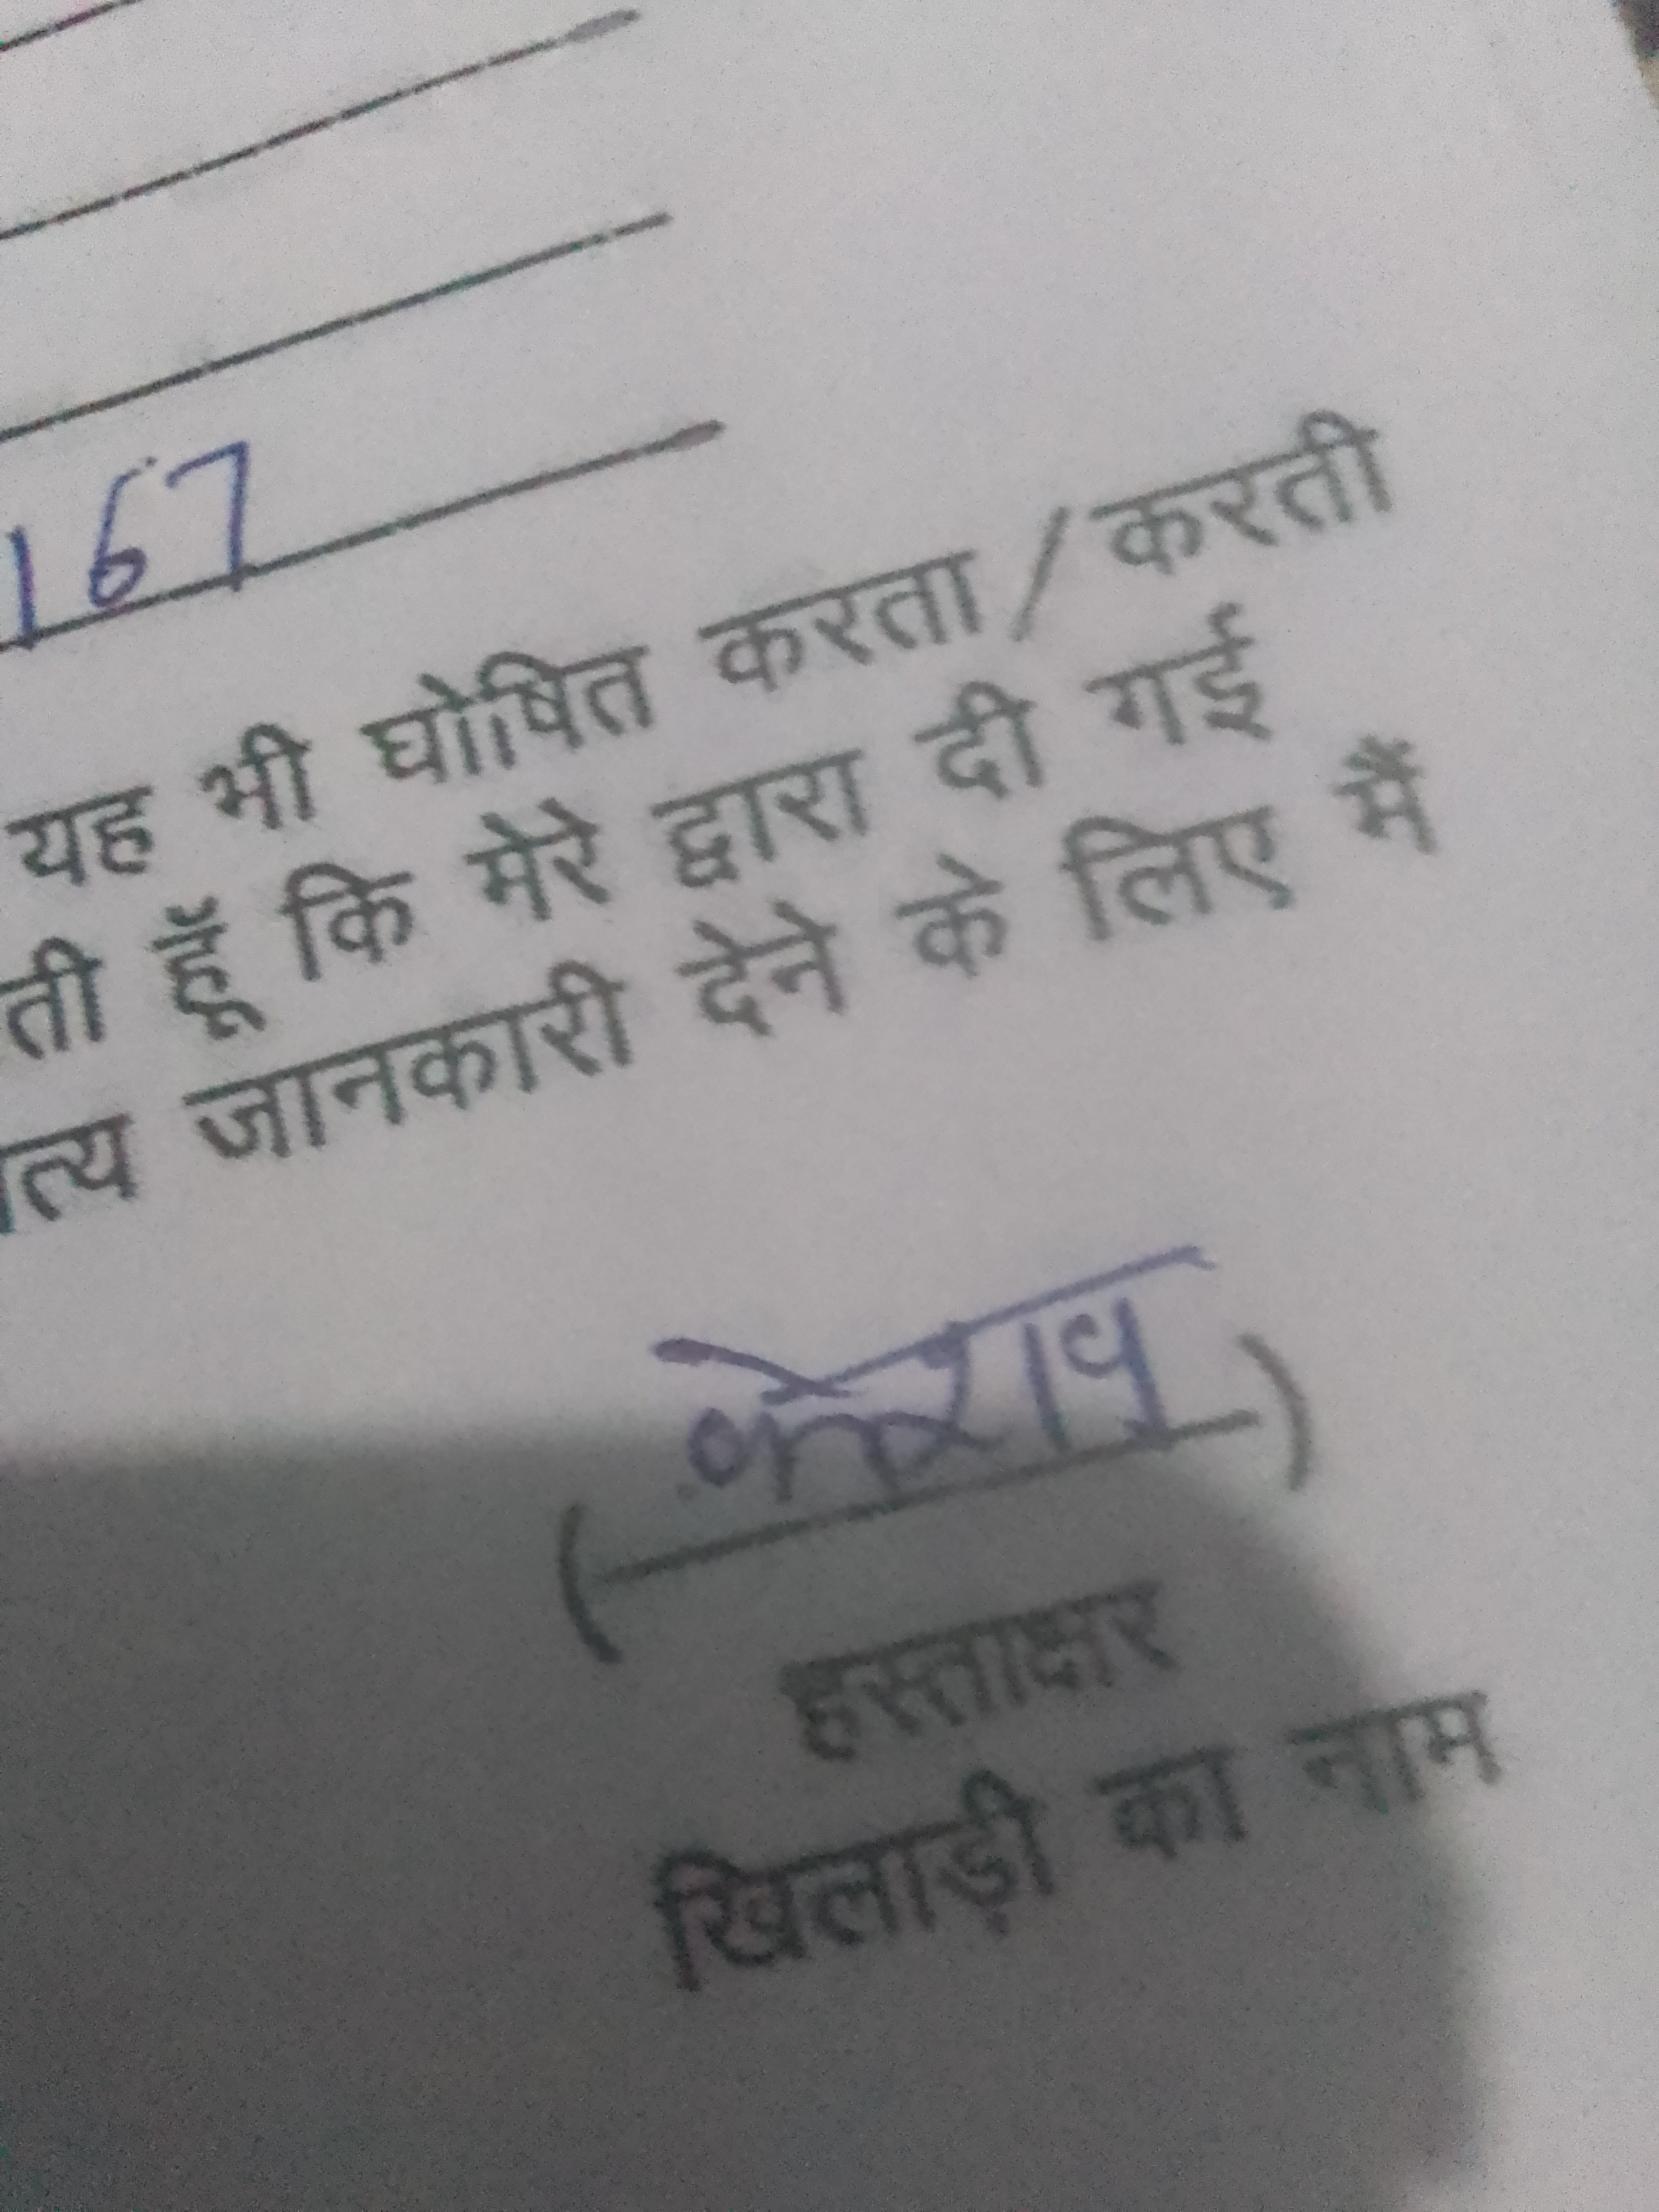 167
यह भी घोषित करता / करती
ती हूँ कि मेरे द्वारा दी गई
त्य जानकारी देने के लिए मैं
( )
हस्ताक्षर
खिलाड़ी का नाम